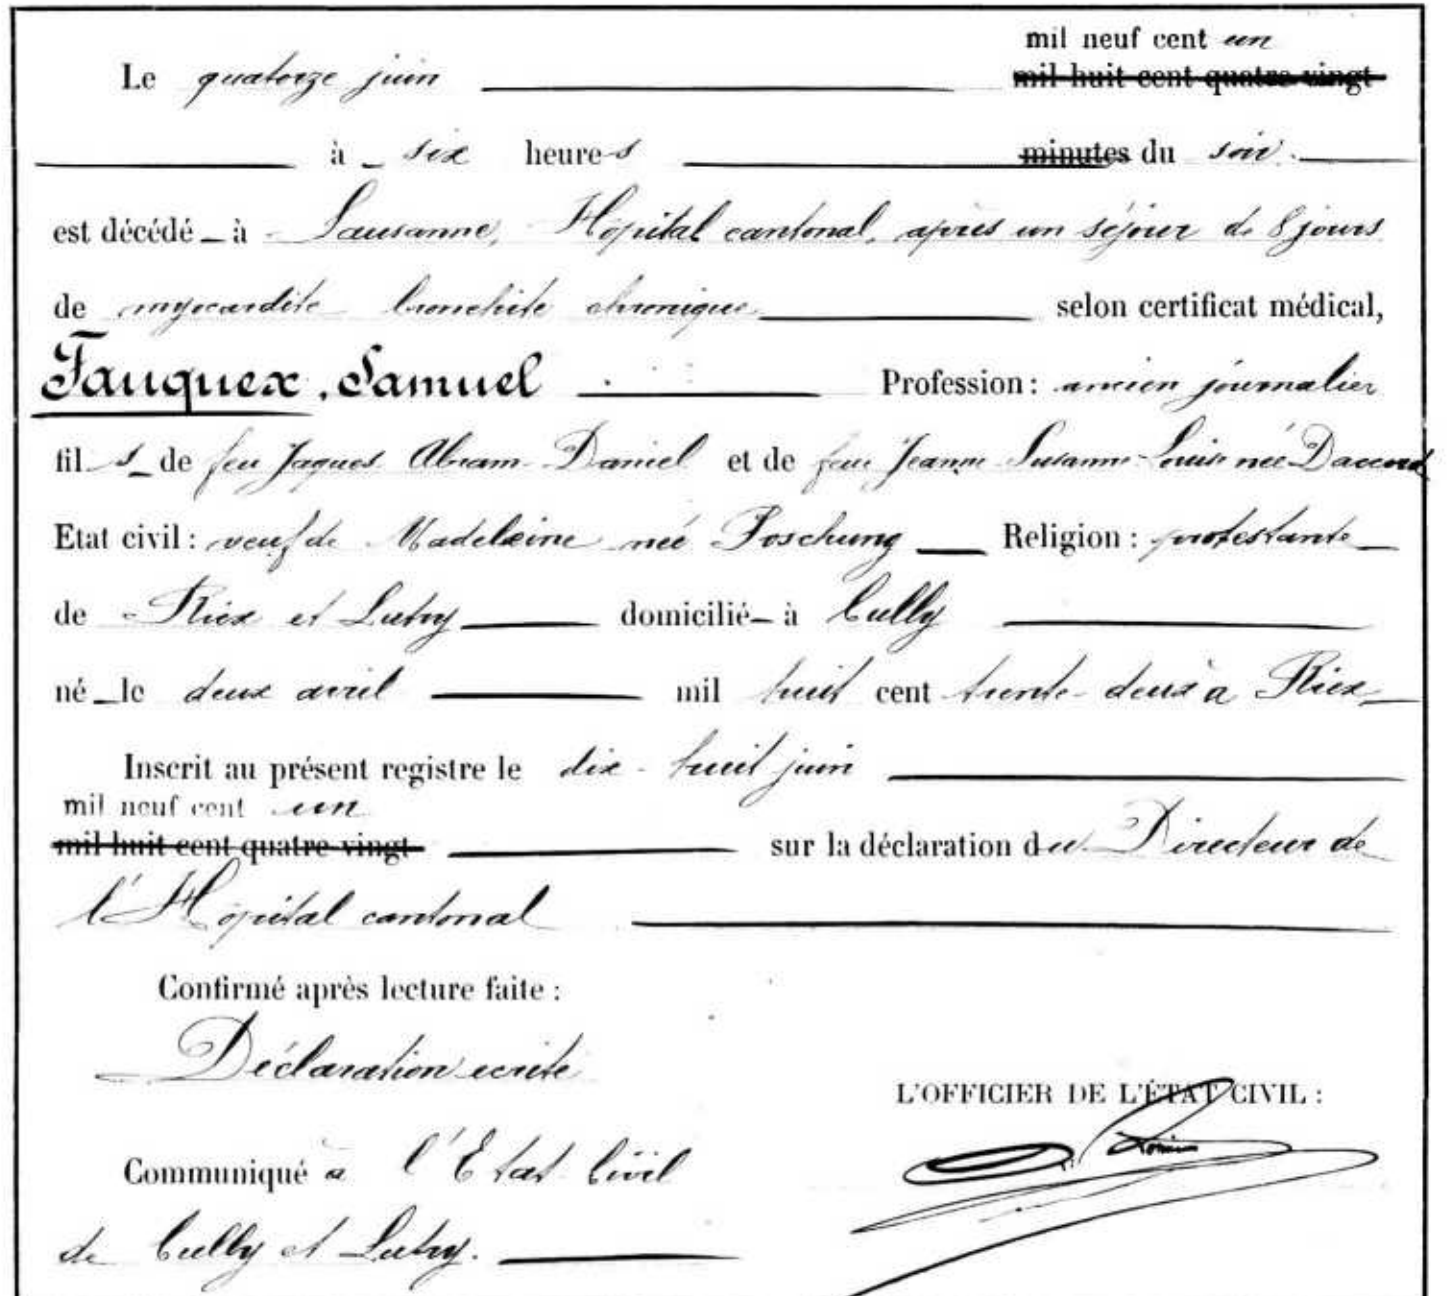 mil neuf cent un
Le quatorze juin mil huit cent quatre-vingt
à six heures minutes du soir.
est décédé à Lausanne, Hôpital cantonal, après un séjour de 8 jours
de myocardite bronchite chronique selon certificat médical,
Fauquex, Samuel Profession: ancien journalier
fils de feu Jaques Abram-Daniel et de feue Jeanne Susanne-Louise née Daccord
Etat civil: veuf de Madeleine née Poschung Religion: protestante
de Riex et Lutry domicilié à Cully
né le deux avril mil huit cent trente-deux à Riex
Inscrit au présent registre le dix-huit juin
mil neuf cent un
mil huit cent quatre-vingt sur la déclaration du Directeur de
l'Hôpital cantonal
Confirmé après lecture faite:
Déclaration écrite
L'OFFICIER DE L'ÉTAT CIVIL:
Communiqué à l'Etat Civil
de Cully et Lutry.